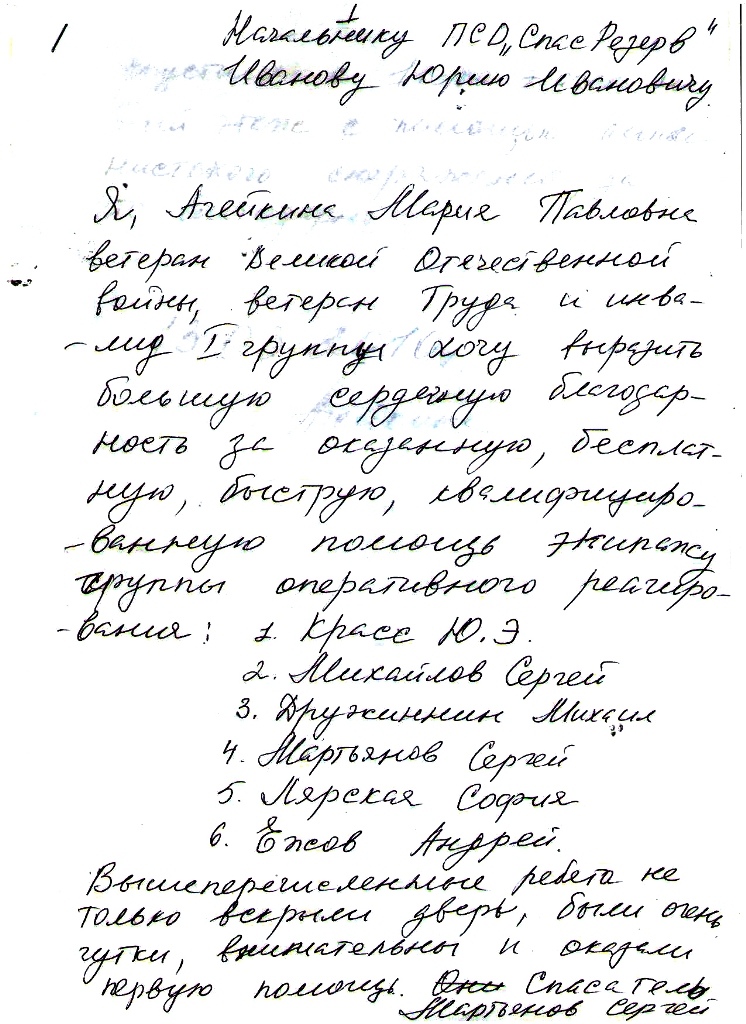 1
Начальнику ПСО „Спас Резерв"
Иванову Юрию Ивановичу
Я, Агейкина Мария Павловна
ветеран Великой Отечественной
войны, ветеран Труда и инва-
-лид I группы хочу выразить
большую сердечную благодар-
ность за оказанную, бесплат-
ную, быструю, квалифициро-
-ванную помощь экипажу
группы оперативного реагиро-
-вания: 1. Красс Ю.Э.
2. Михайлов Сергей
3. Дружиннин Михаил
4. Мартьянов Сергей
5. Лярская София
6. Ёжов Андрей.
Вышеперечисленные ребята не
только вскрыли дверь, были очень
чутки, внимательны и оказали
первую помощь. Они Спасатель
Мартьянов Сергей